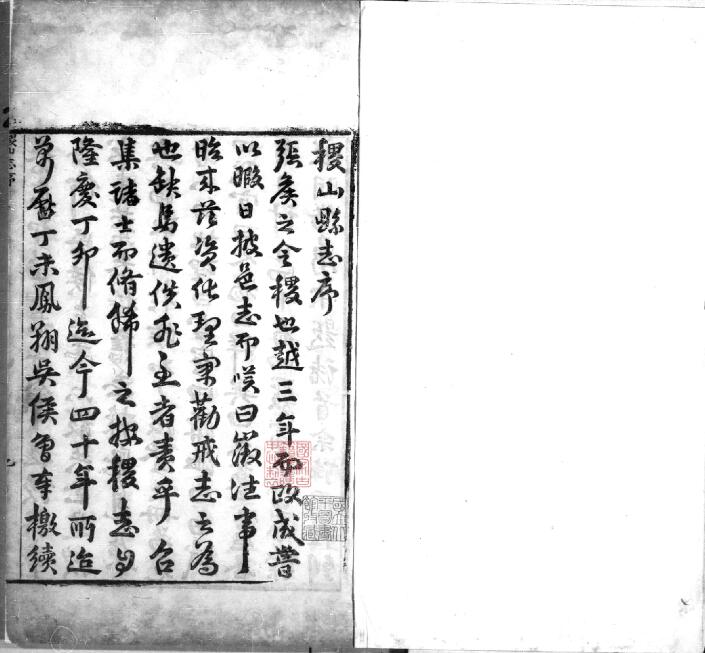 稷山縣志序
張矦之令稷也越三年而政成嘗
以暇日披邑志而嘆曰徵往事
眎來茲資化理寀勸戒志之為
也缺焉遺佚非主者責乎召
集諸士而脩輯之按稷志自
隆慶丁卯迄今四十年所迨
萬曆丁未鳳翔吳侯曾奉檄續